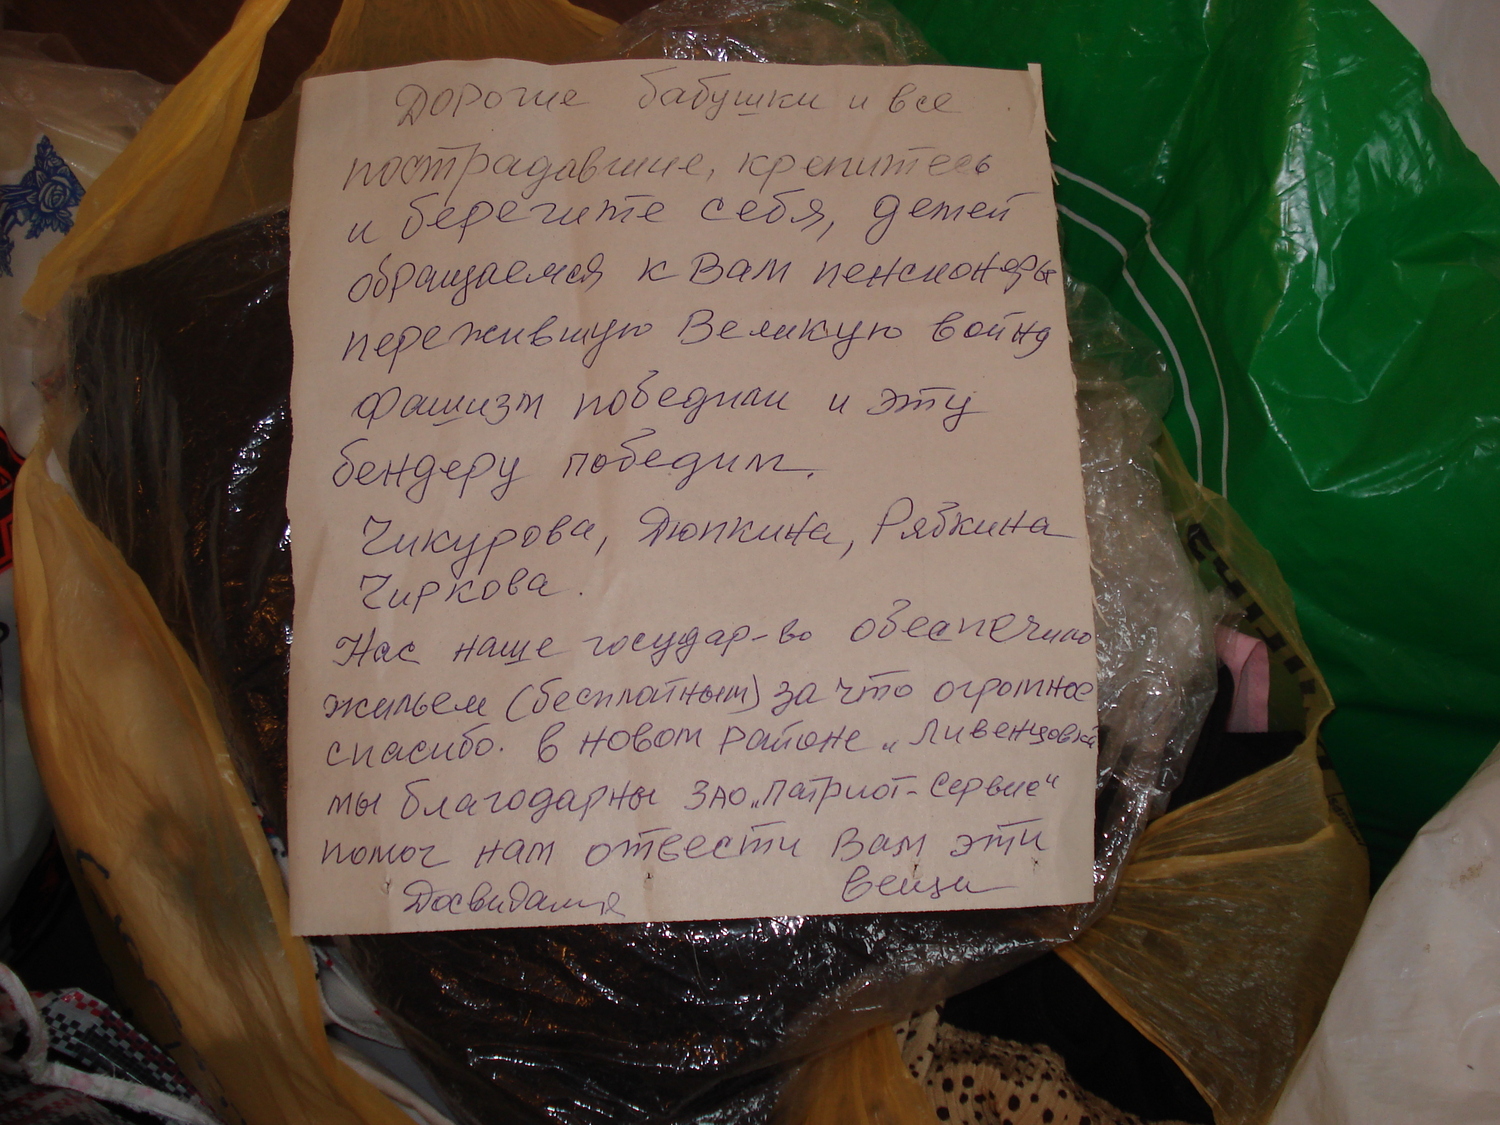 Дорогие бабушки и все
пострадавшие, крепитесь
и берегите себя, детей
обращаемся к Вам пенсионеры
пережившую Великую войну
фашизм победили и эту
бендеру победим.
Чикурова, Дюпкина, Рябкина
Чиркова.
Нас наше государ-во обеспечило
жильем (бесплатным) за что огромное
спасибо. в новом районе „Ливенцовка
мы благодарны ЗАО „Патриот-Сервис“
помог нам отвести Вам эти
вещи
Досвидания